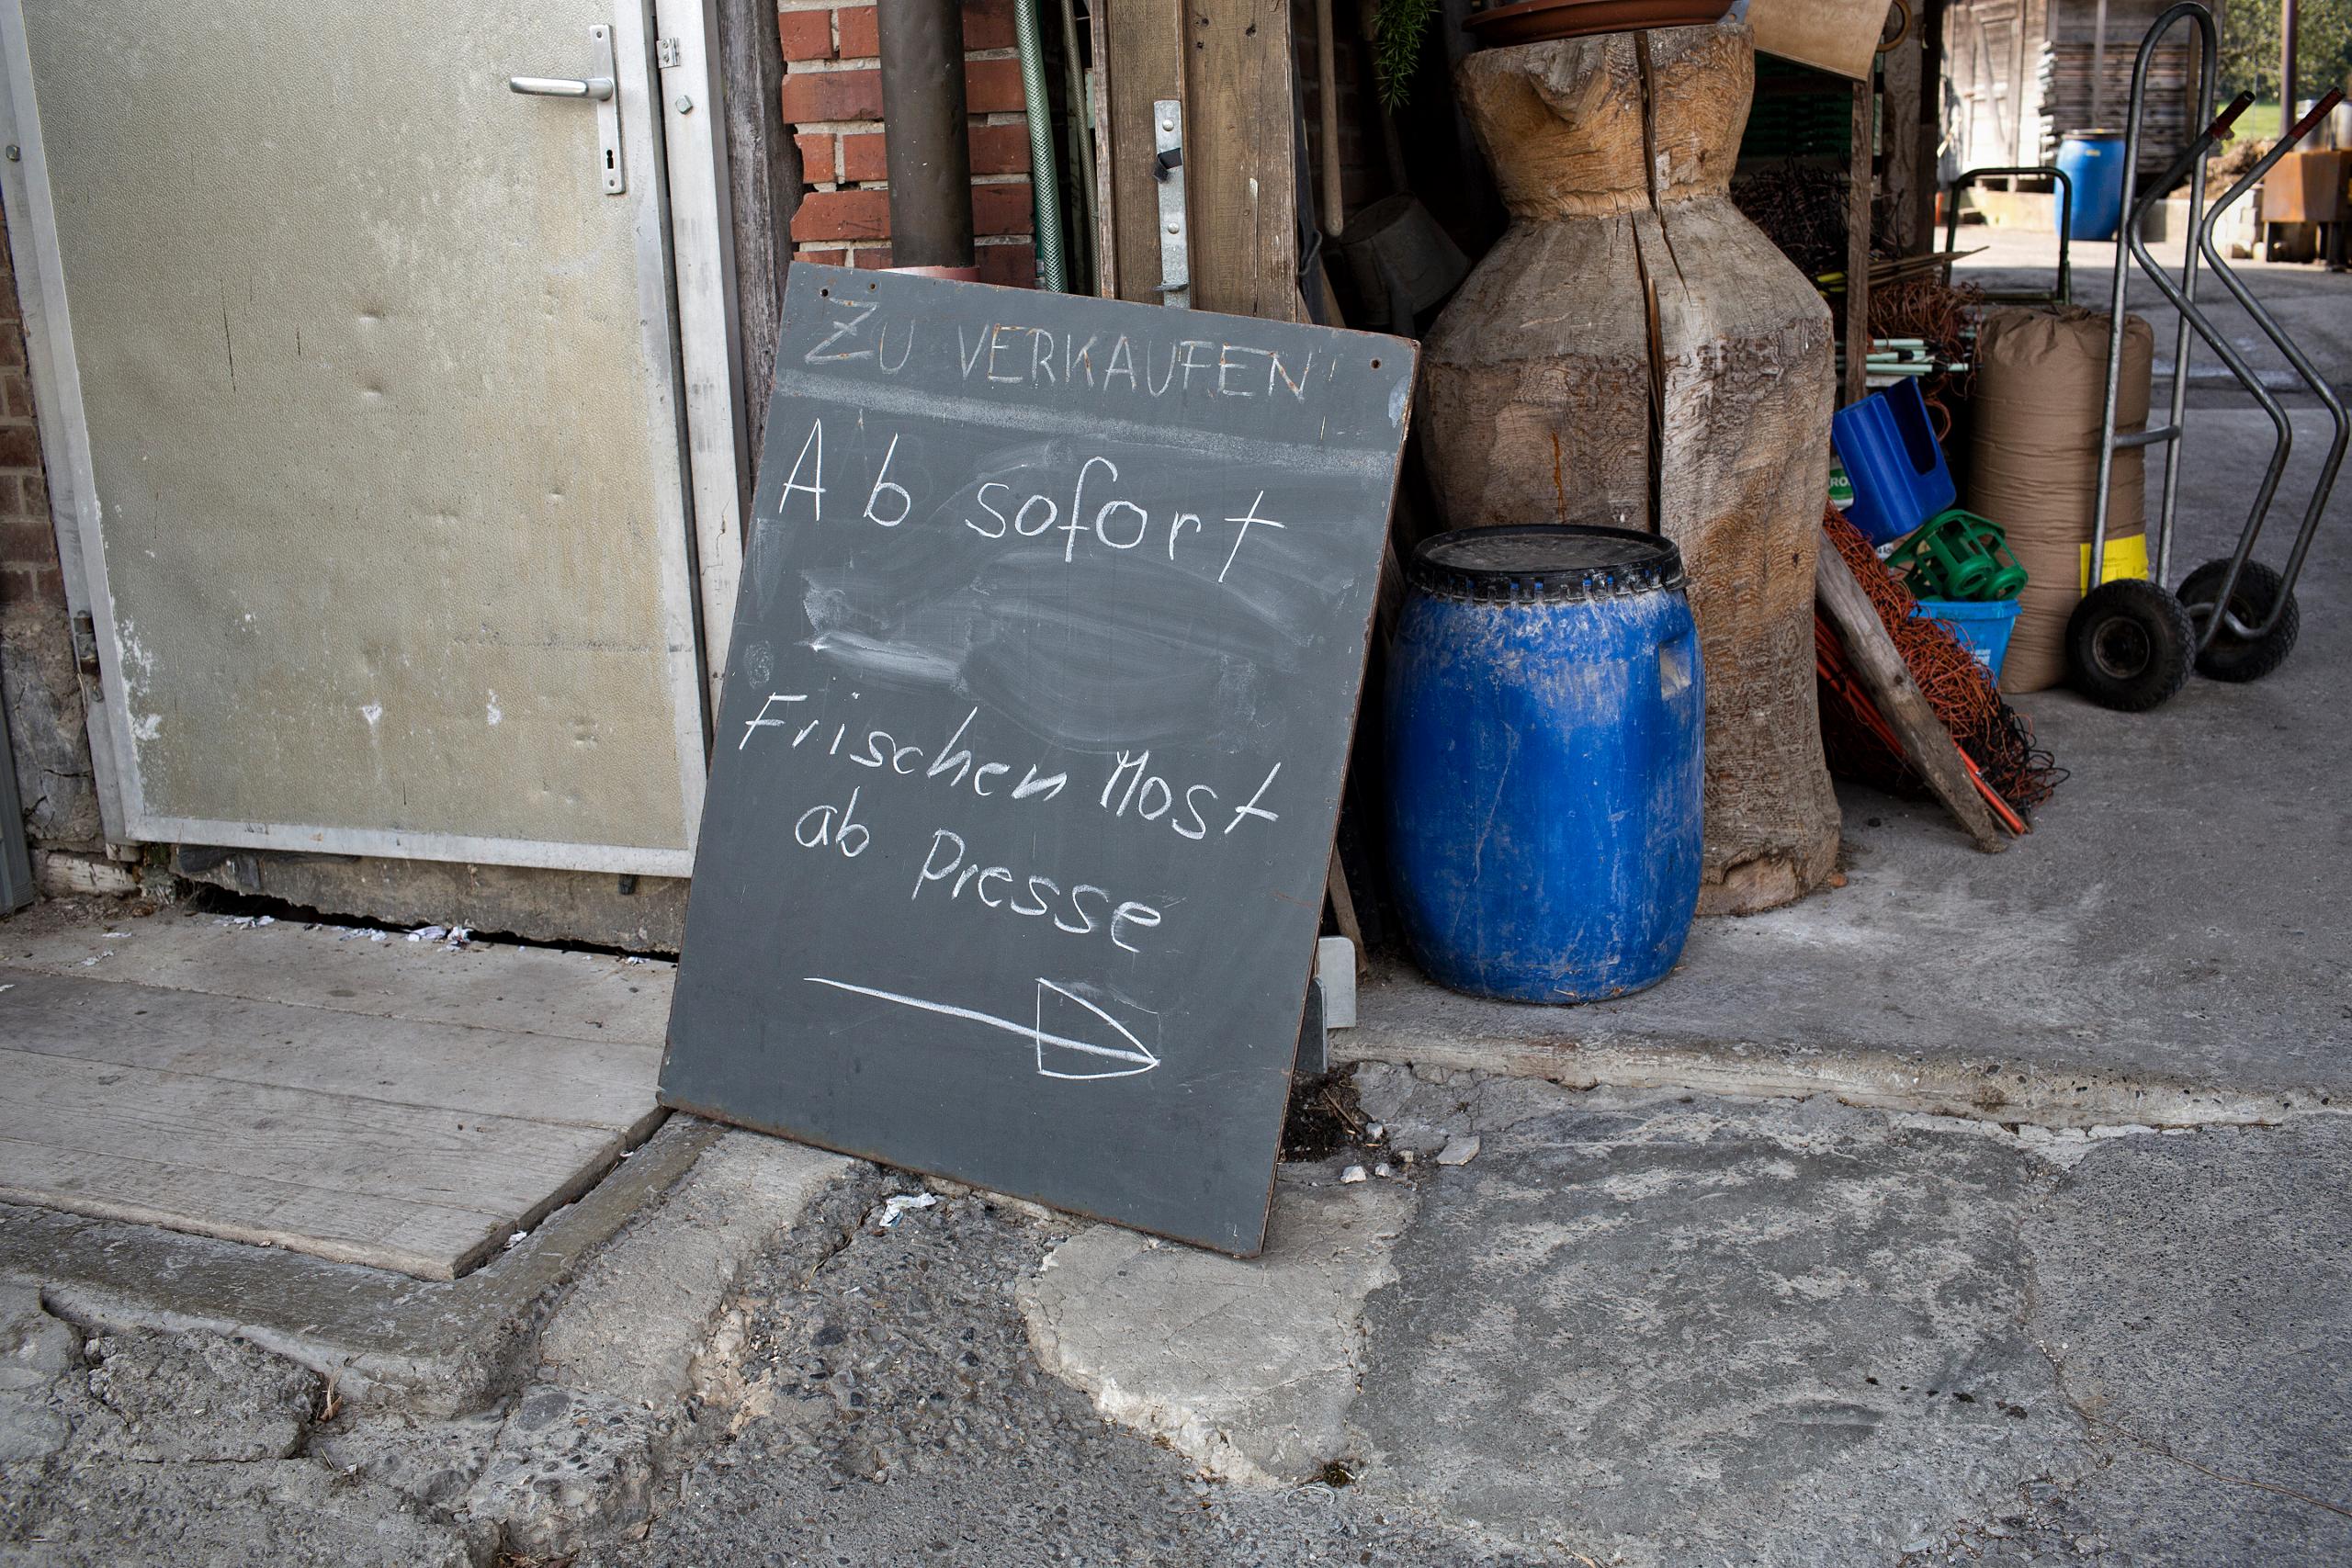 ZU VERKAUFEN
Ab sofort
Frischen Most
ab Presse